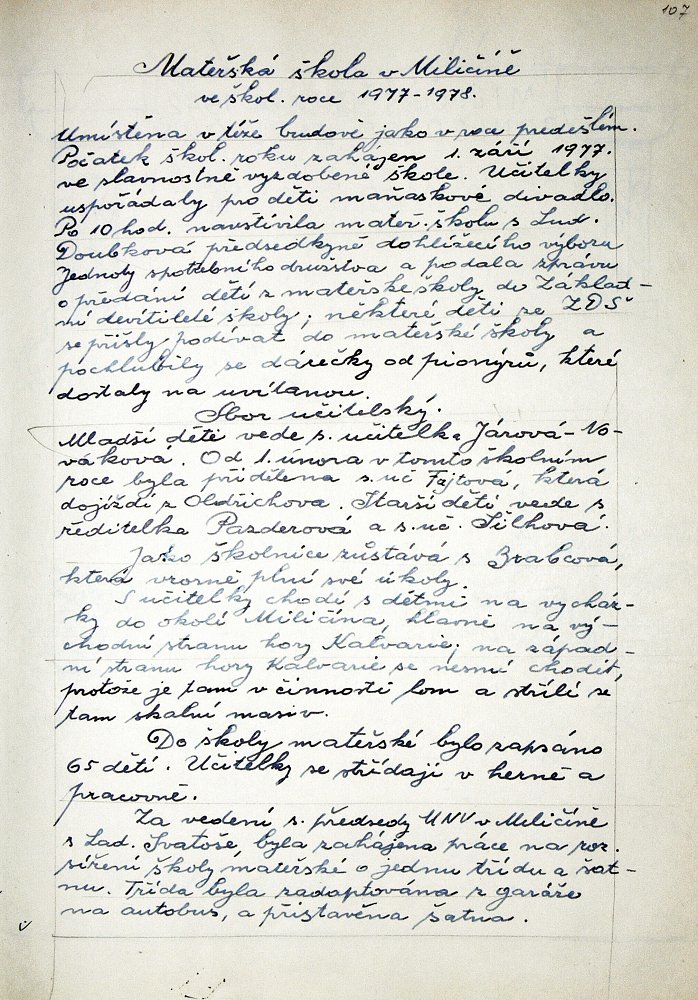 107
Mateřská škola v Miličíně
ve škol. roce 1977-1978.
Umístěna v téže budově jako v roce předešlém.
Počátek škol. roku zahájen 1. září 1977.
ve slavnostně vyzdobené škole. Učitelky
uspořádaly pro děti maňáskové divadlo.
Po 10 hod. navštívila mateř. školu s Lud.
Doubková předsedkyně dohlížecího výboru
Jednoty spotřebního družstva a podala zprávu
o předání dětí z mateřské školy do Základ-
ní devítileté školy; některé děti ze ZDŠ
se přišly podívat do mateřské školy a
pochlubily se dárečky od pionýrů, které
dostaly na uvítanou.
Sbor učitelský.
Mladší děti vede s. učitelka Járová-No-
váková. Od 1. února v tomto školním
roce byla přidělena s. uč Fejtová, která
dojíždí z Oldřichova. Starší děti vede s
ředitelka Pazderová a s. uč. Šilhová.
Jako školnice zůstává s Brabcová,
která vzorně plní své úkoly.
S učitelky chodí s dětmi na vycház-
ky do okolí Miličína, hlavně na vý-
chodní stranu hory Kalvarie; na západ-
ní stranu hory Kalvarie se nesmí chodit,
protože je tam v činnosti lom a střílí se
tam skalní masiv.
Do školy mateřské bylo zapsáno
65 dětí. Učitelky se střídají v herně a
pracovně.
Za vedení s. předsedy MNV v Miličíně
s Lad. Svatoše, byla zahájena práce na roz.
šíření školy mateřské o jednu třídu a šat-
nu. Třída byla zadaptována z garáže
na autobus, a přistavěna šatna.